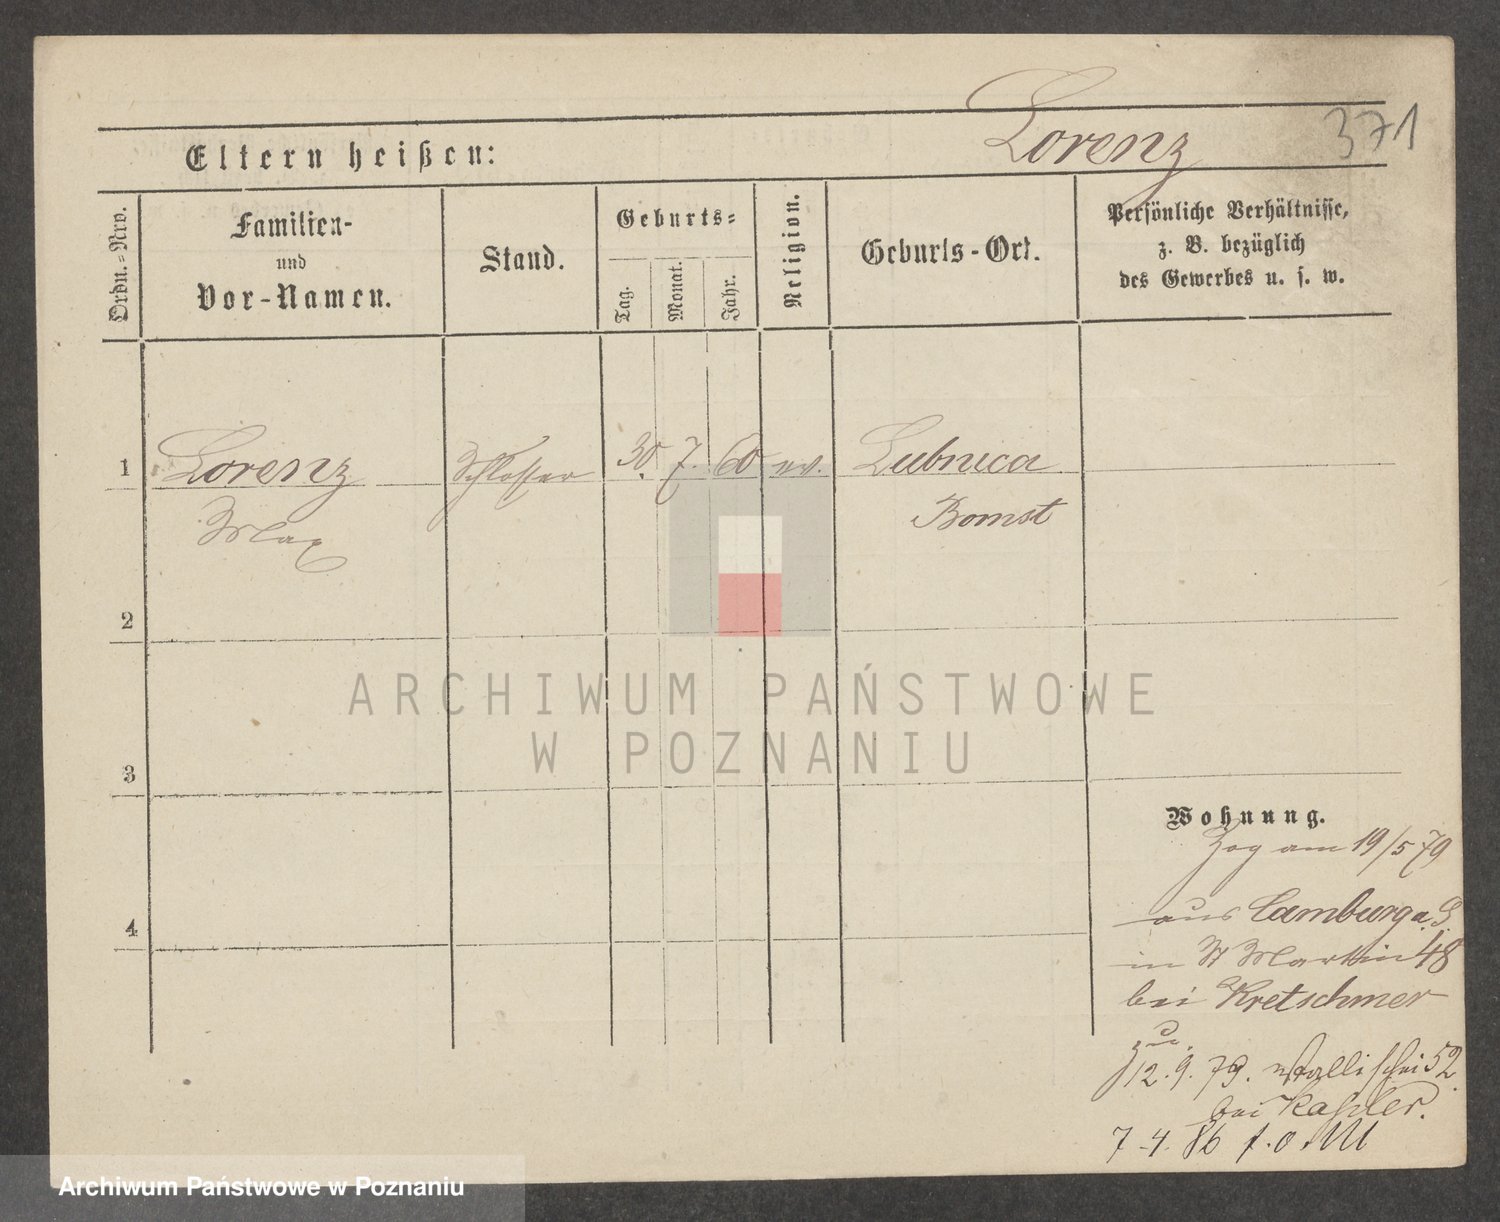 Lorenz 371
Eltern heißen:
Ordn.=Nro.
Familien-
und
Vor-Namen.
Stand.
Geburts=
Tag.
Monat.
Jahr.
Religion.
Geburts-Ort.
Persönliche Verhältnisse,
z. B. bezüglich
des Gewerbes u. s. w.
1 Lorenz Schlosser 30. 7. 60 ev. Lubnica
Max Bomst
2
3
4
Wohnung.
Zog am 19/5 79
aus Camburg a. S.
in St Martin 48
bei Kretschmer
12. 9. 79. Wallischei 52.
bei Kahler.
7. 4. 86
ARCHIWUM PAŃSTWOWE
W POZNANIU
Archiwum Państwowe w Poznaniu